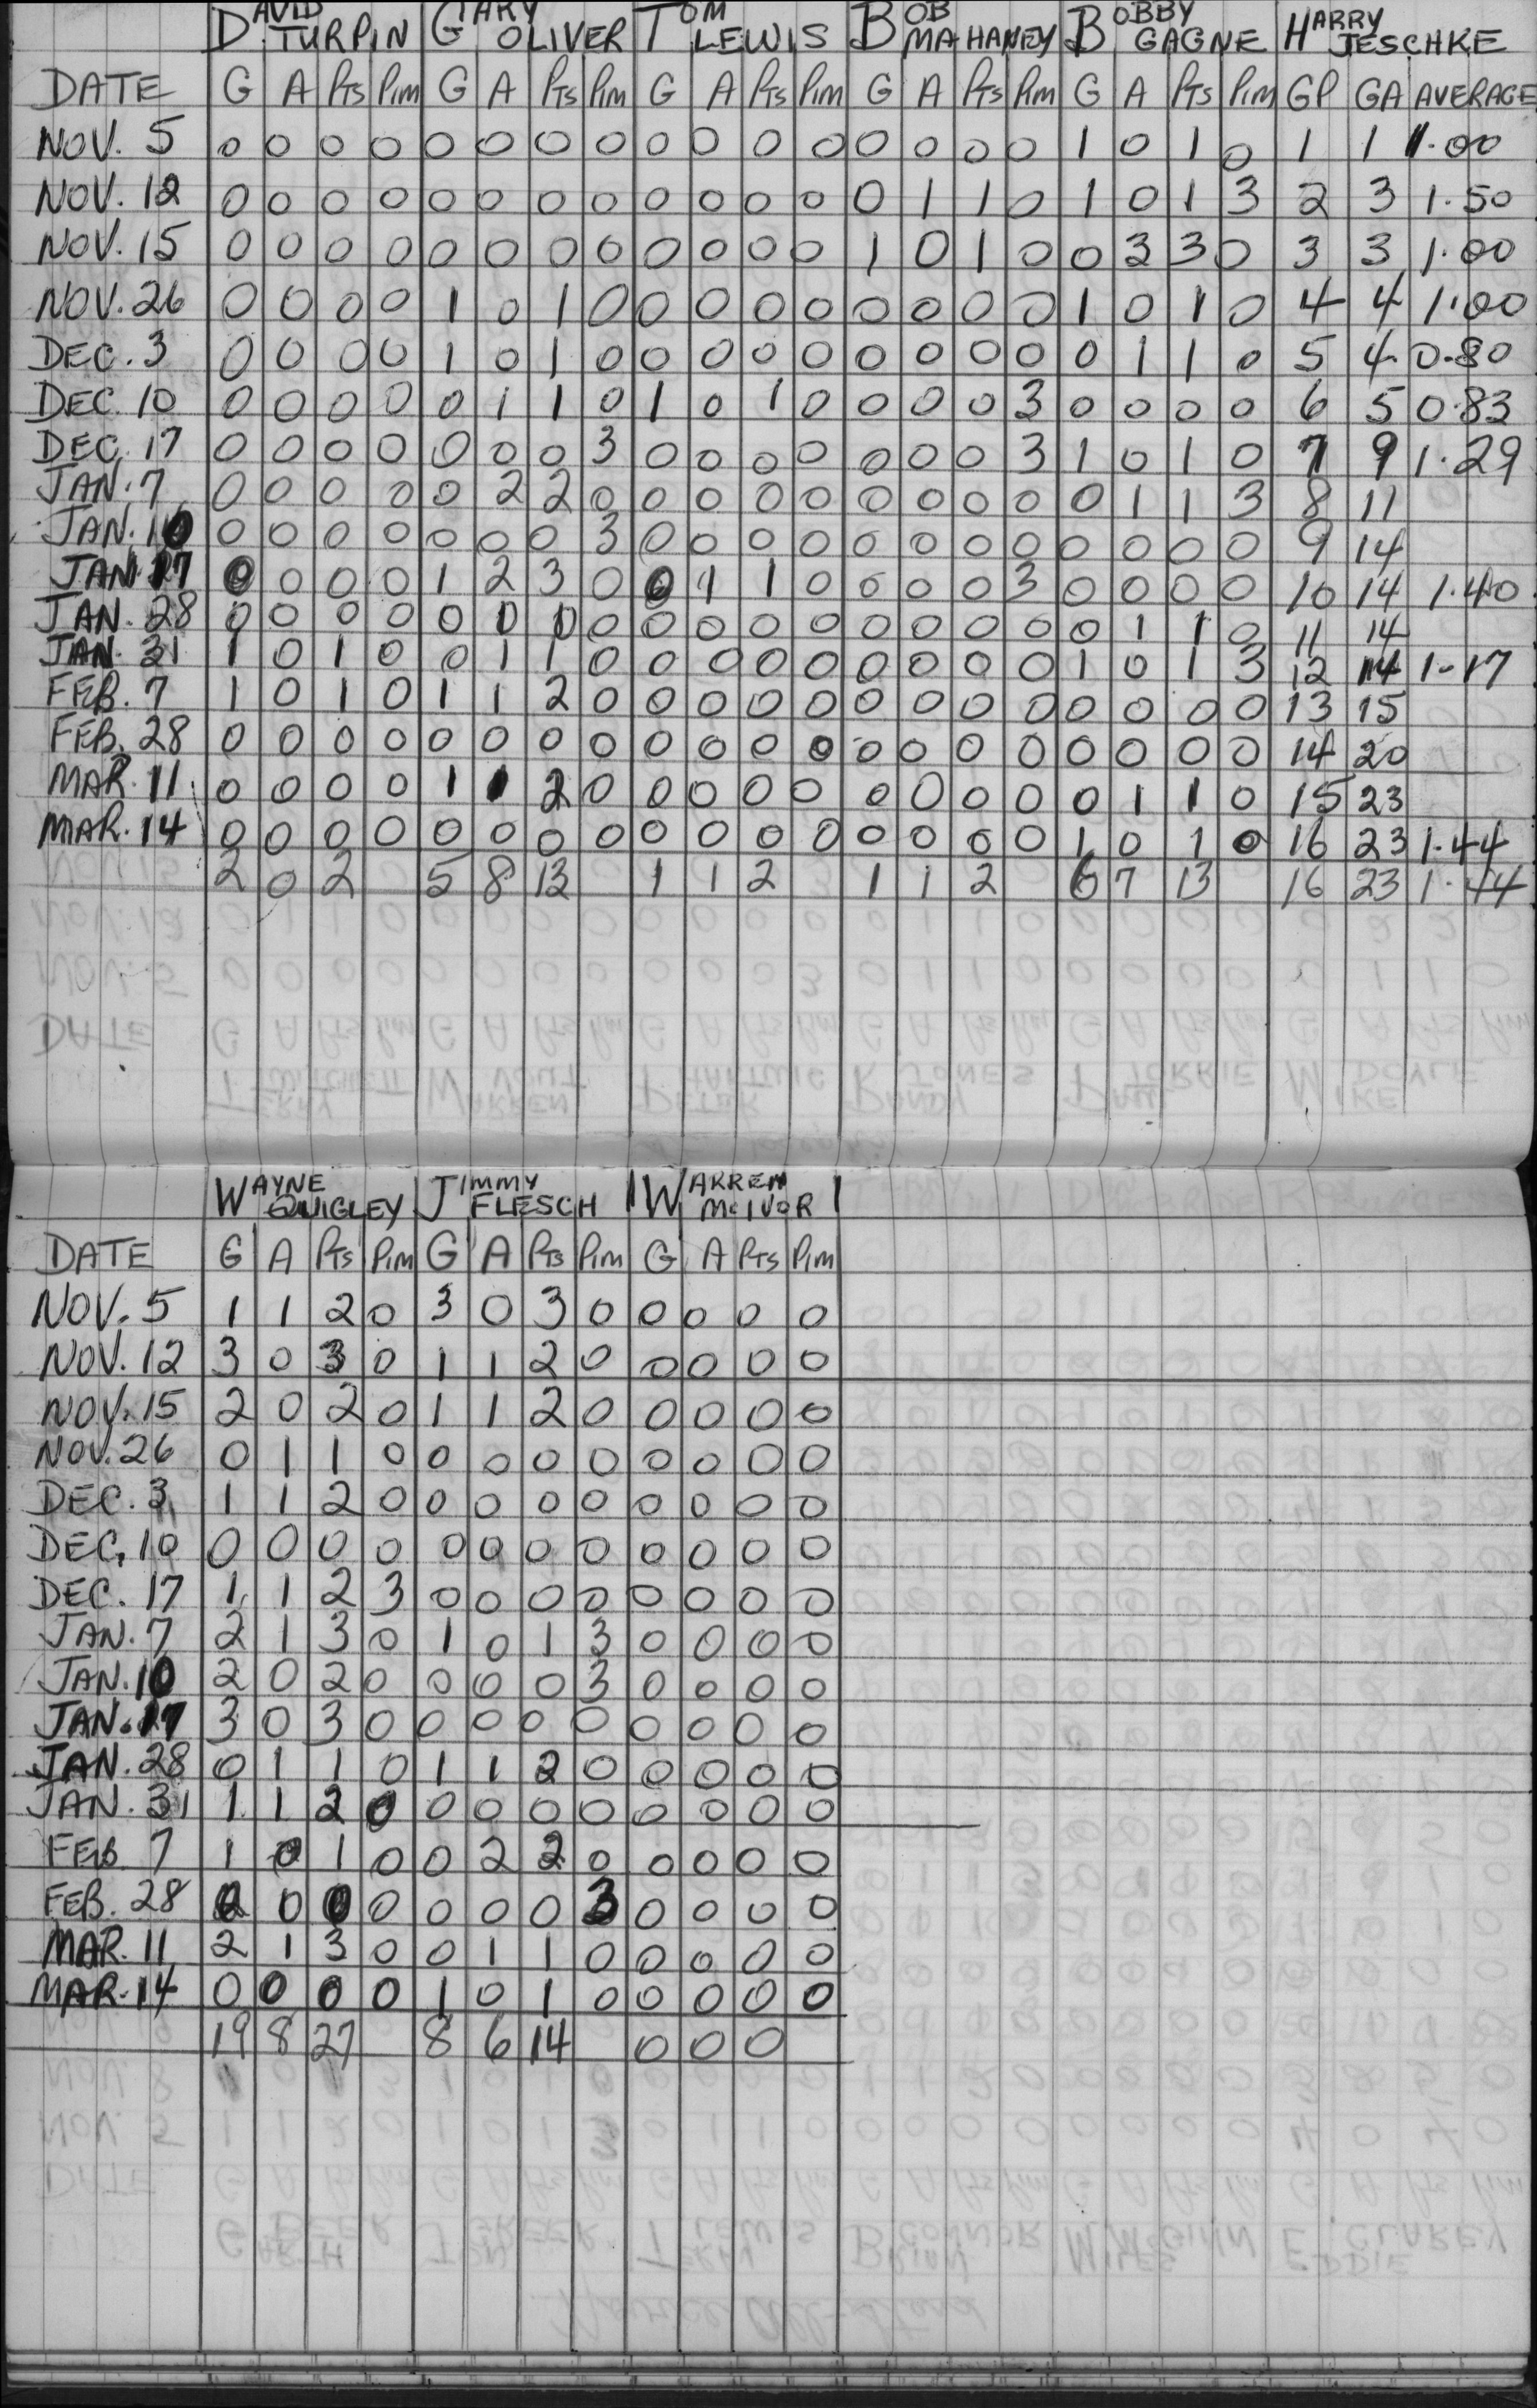 DAVID TURPIN GARY OLIVER TOM LEWIS BOB MAHANEY BOBBY GAGNE HARRY JESCHKE
DATE G A Pts Pim G A Pts Pim G A Pts Pim G A Pts Pim G A Pts Pim GP GA AVERAGE
NOV. 5 0 0 0 0 0 0 0 0 0 0 0 0 0 0 0 0 1 0 1 0 1 1 1.00
NOV. 12 0 0 0 0 0 0 0 0 0 0 0 0 0 1 1 0 1 0 1 3 2 3 1.50
NOV. 15 0 0 0 0 0 0 0 0 0 0 0 0 1 0 1 0 0 3 3 0 3 3 1.00
NOV. 26 0 0 0 0 1 0 1 0 0 0 0 0 0 0 0 0 1 0 1 0 4 4 1.00
DEC. 3 0 0 0 0 1 0 1 0 0 0 0 0 0 0 0 0 0 1 1 0 5 4 0.80
DEC. 10 0 0 0 0 0 1 1 0 1 0 1 0 0 0 0 3 0 0 0 0 6 5 0.83
DEC. 17 0 0 0 0 0 0 0 3 0 0 0 0 0 0 0 3 1 0 1 0 7 9 1.29
JAN. 7 0 0 0 0 0 2 2 0 0 0 0 0 0 0 0 0 0 1 1 3 8 11
JAN. 10 0 0 0 0 0 0 0 3 0 0 0 0 0 0 0 0 0 0 0 0 9 14
JAN 17 0 0 0 0 1 2 3 0 0 1 1 0 0 0 0 3 0 0 0 0 10 14 1.40
JAN. 28 0 0 0 0 0 0 0 0 0 0 0 0 0 0 0 0 0 1 1 0 11 14
JAN. 31 1 0 1 0 0 1 1 0 0 0 0 0 0 0 0 0 1 0 1 3 12 14 1.17
FEB. 7 1 0 1 0 1 1 2 0 0 0 0 0 0 0 0 0 0 0 0 0 13 15
FEB. 28 0 0 0 0 0 0 0 0 0 0 0 0 0 0 0 0 0 0 0 0 14 20
MAR. 11 0 0 0 0 1 1 2 0 0 0 0 0 0 0 0 0 0 1 1 0 15 23
MAR. 14 0 0 0 0 0 0 0 0 0 0 0 0 0 0 0 0 1 0 1 0 16 23 1.44
2 0 2 5 8 13 1 1 2 1 1 2 6 7 13 16 23 1.44
WAYNE QUIGLEY JIMMY FLESCH WARREN McIVOR
DATE G A Pts Pim G A Pts Pim G A Pts Pim
NOV. 5 1 1 2 0 3 0 3 0 0 0 0 0
NOV. 12 3 0 3 0 1 1 2 0 0 0 0 0
NOV. 15 2 0 2 0 1 1 2 0 0 0 0 0
NOV. 26 0 1 1 0 0 0 0 0 0 0 0 0
DEC. 3 1 1 2 0 0 0 0 0 0 0 0 0
DEC. 10 0 0 0 0 0 0 0 0 0 0 0 0
DEC. 17 1 1 2 3 0 0 0 0 0 0 0 0
JAN. 7 2 1 3 0 1 0 1 3 0 0 0 0
JAN. 10 2 0 2 0 0 0 0 3 0 0 0 0
JAN. 17 3 0 3 0 0 0 0 0 0 0 0 0
JAN. 28 0 1 1 0 1 1 2 0 0 0 0 0
JAN. 31 1 1 2 0 0 0 0 0 0 0 0 0
FEB 7 1 0 1 0 0 2 2 0 0 0 0 0
FEB. 28 0 0 0 0 0 0 0 3 0 0 0 0
MAR. 11 2 1 3 0 0 1 1 0 0 0 0 0
MAR. 14 0 0 0 0 1 0 1 0 0 0 0 0
19 8 27 8 6 14 0 0 0